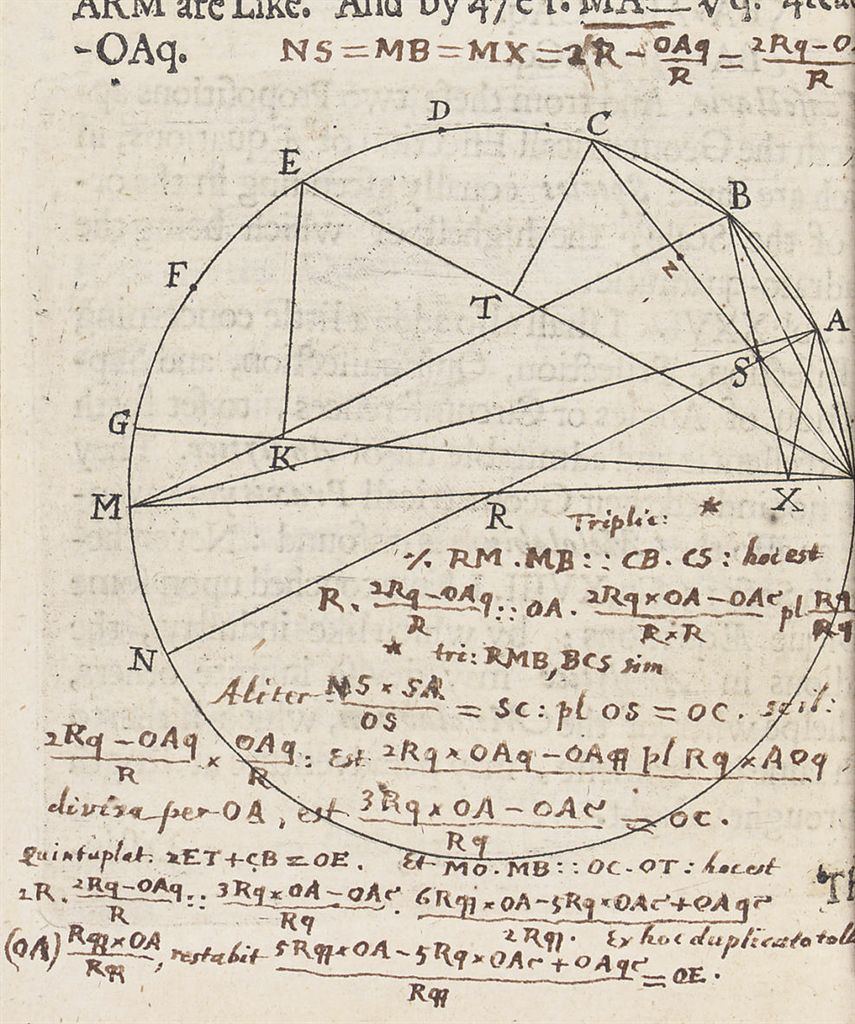 ARM are Like. And by 47 e 1. MA = √q. 4
-OAq.
NS = MB = MX = 2R - OAq/R = 2Rq-O /R
D
C
E
B
F
Z
T
A
S
G
K
M
X
R
Triplic: *
∴ RM . MB :: CB . CS : hoc est
R . 2Rq-OAq/R :: OA . 2Rq×OA-OAc/R×R pl Rq/Rq
N
* tri: RMB, BCS sim
Aliter NS × SA/OS = SC : pl OS = OC . scil:
2Rq-OAq/R × OAq/R : Est 2Rq×OAq-OAqq pl Rq×AOq
divisa per OA, est 3Rq×OA-OAc/Rq = OC.
Quintuplat: 2ET+CB=OE. Et MO.MB::OC.OT: hoc est
2R . 2Rq-OAq/R :: 3Rq×OA-OAc/Rq . 6Rqq×OA-5Rq×OAc+OAqc/2Rqq. Ex hoc duplicato toll
Th
(OA) Rqq×OA/Rqq, restabit 5Rqq×OA-5Rq×OAc+OAqc/Rqq = OE.